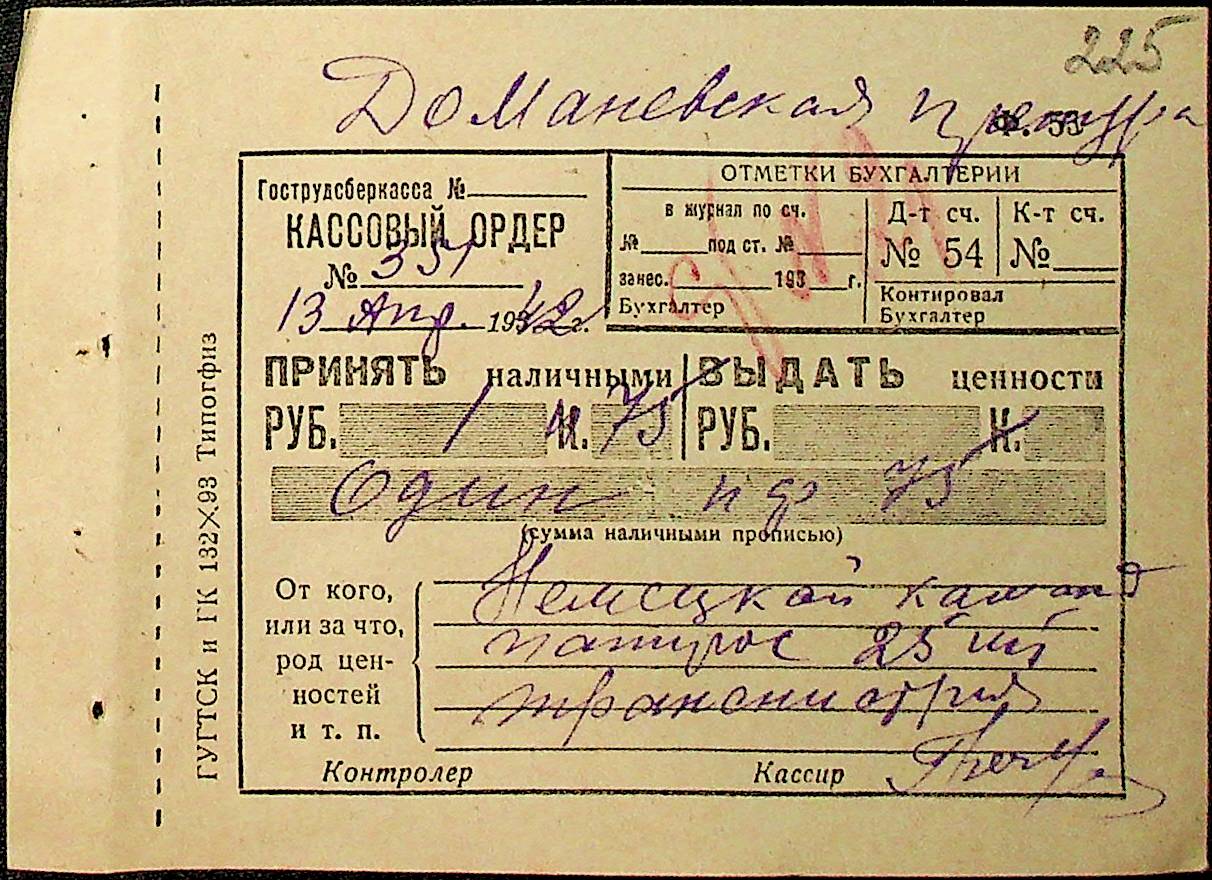 225
Доманевская претура
Ф. 53
Гострудсберкасса №
КАССОВЫЙ ОРДЕР
№ 351
13 Апр. 1942 г.
ОТМЕТКИ БУХГАЛТЕРИИ
в журнал по сч.
№ под ст. №
занес. 193 г.
Бухгалтер
Д-т сч.
№ 54
К-т сч.
№
Контировал
Бухгалтер
ПРИНЯТЬ наличными
РУБ. 1 К. 75
ВЫДАТЬ ценности
РУБ. К.
Один 75
(сумма наличными прописью)
От кого,
или за что,
род цен-
ностей
и т. п.
Немецкой
папирос 25 шт
транснистрия
Контролер
Кассир
ГУГТСК и ГК 132×93 Типогфиз